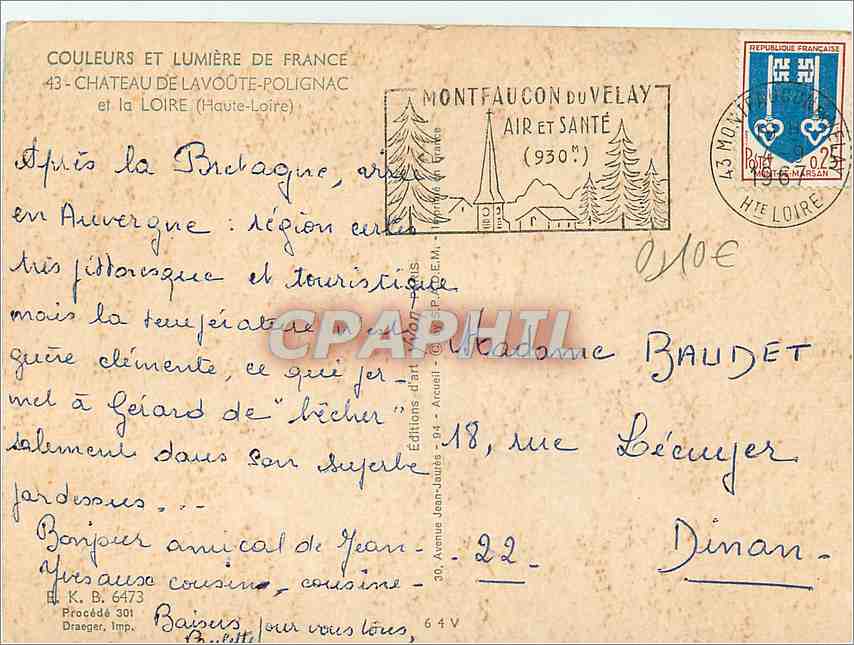 COULEURS ET LUMIÈRE DE FRANCE
43 - CHATEAU DE LAVOÛTE-POLIGNAC
et la LOIRE (Haute-Loire)
Après la Bretagne,
en Auvergne : région certes
très pittoresque et touristique
mais la température n'est
guère clémente, ce qui per-
met à Gérard de "bêcher"
salement dans son superbe
pardessus...
Bonjour amical de Jean-
Yves aux cousin, cousine -
Baisers pour vous tous,
Paulette
E. K. B. 6473
Procédé 301
Draeger, Imp.
64 V
MONTFAUCON DU VELAY
AIR ET SANTÉ
(930 M.)
REPUBLIQUE FRANÇAISE
POSTES 0,25
MONT-DE-MARSAN
43 MONTFAUCON DU VELAY
9
1967
HTE LOIRE
0,10€
Éditions d'art Yvon PARIS
30, Avenue Jean-Jaurès - 94 - Arcueil - © by S.P.A.D.E.M. - Imprimé en France
CPAPHIL
Madame BAUDET
18, rue Lécuyer
- 22 - Dinan -